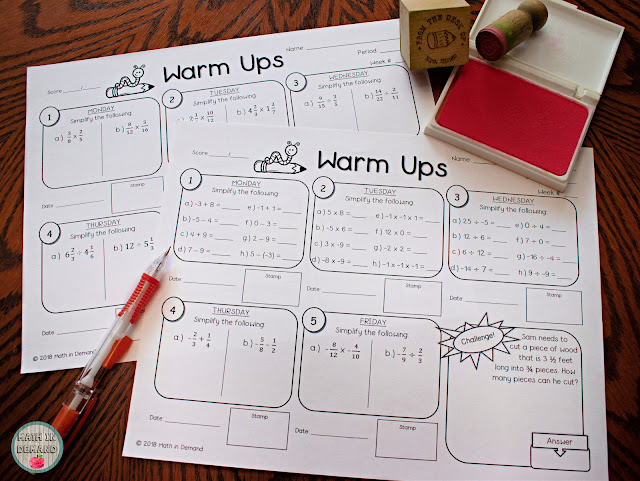 FROM THE DESK OF
Warm Ups
Name
Period
Score /
Week #
1
MONDAY
Simplify the following:
a) 3/8 × 2/5 b) 8/12 × 3/16
2
TUESDAY
Simplify the following:
10/12 b) 4 2/3 × 1 2/7
3
WEDNESDAY
Simplify the following:
a) 9/15 ÷ 3/5 b) 14/22 ÷ 2/11
Date
Stamp
4
THURSDAY
Simplify the following:
a) 6 2/3 ÷ 4 1/6 b) 12 ÷ 5 1/3
Date
© 2018 Math in Demand
Warm Ups
Score /
Name
Week #
1
MONDAY
Simplify the following:
a) -3 + 8 = e) -1 + 1 =
b) -5 - 4 = f) 0 - 3 =
c) 4 + 9 = g) 2 - 9 =
d) 7 - 9 = h) 5 - (-3) =
Date: Stamp
2
TUESDAY
Simplify the following:
a) 5 x 8 = e) -1 x -1 x 1 =
b) -5 x 6 = f) 12 x 0 =
c) 3 x -9 = g) -2 x 2 =
d) -8 x -9 = h) -1 x -1 x -1 =
Date: Stamp
3
WEDNESDAY
Simplify the following:
a) 25 ÷ -5 = e) 0 ÷ 4 =
b) 12 ÷ 6 = f) 7 ÷ 0 =
c) 6 ÷ 12 = g) -16 ÷ -4 =
d) -14 ÷ 7 = h) 9 ÷ -9 =
Date: Stamp
4
THURSDAY
Simplify the following:
a) -2/3 + 1/4 b) -5/8 - 1/2
Date: Stamp
5
FRIDAY
Simplify the following:
a) -8/12 × -4/10 b) -7/9 ÷ 2/3
Date: Stamp
Challenge!
Sam needs to
cut a piece of wood
that is 3 ½ feet
long into ¾ pieces. How
many pieces can he cut?
Answer
© 2018 Math in Demand
MATH IN
DEMAND